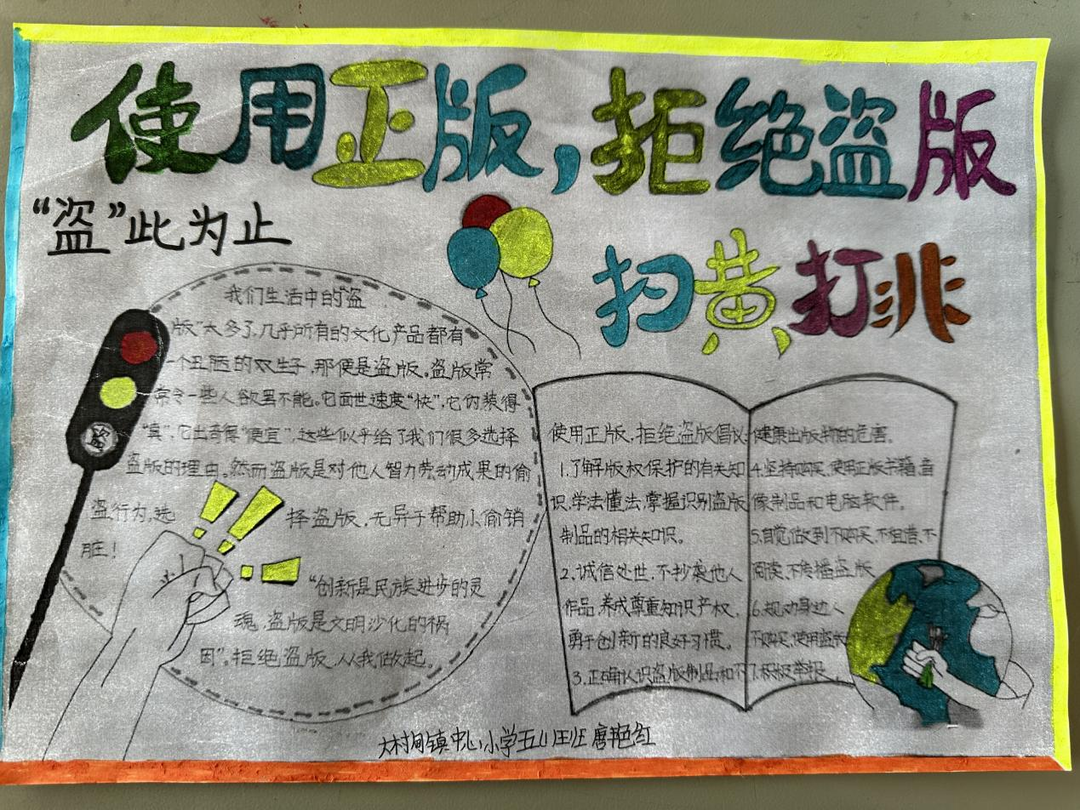 使用正版，拒绝盗版
“盗”此为止
扫黄打非
我们生活中的“盗
版”太多了，几乎所有的文化产品都有
一个丑陋的双生子，那便是盗版。盗版常
常令一些人欲罢不能。它面世速度“快”，它伪装得
“真”，它出奇得“便宜”，这些似乎给了我们很多选择
盗版的理由。然而盗版是对他人智力劳动成果的偷
盗行为，选择盗版，无异于帮助小偷销
脏！
“创新是民族进步的灵
魂，盗版是文明沙化的祸
因”。拒绝盗版，从我做起。
盗
使用正版、拒绝盗版倡议：
1.了解版权保护的有关知
识，学法懂法，掌握识别盗版
制品的相关知识。
2.诚信处世，不抄袭他人
作品，养成尊重知识产权，
勇于创新的良好习惯。
3.正确认识盗版制品和不
健康出版物的危害。
4.坚持购买、使用正版书籍、音
像制品和电脑软件。
5.自觉做到不购买、不租借、不
阅读、不传播盗版
6.规劝身边人
不购买、使用盗版
7.积极举报
林埘镇中心小学五(1)班